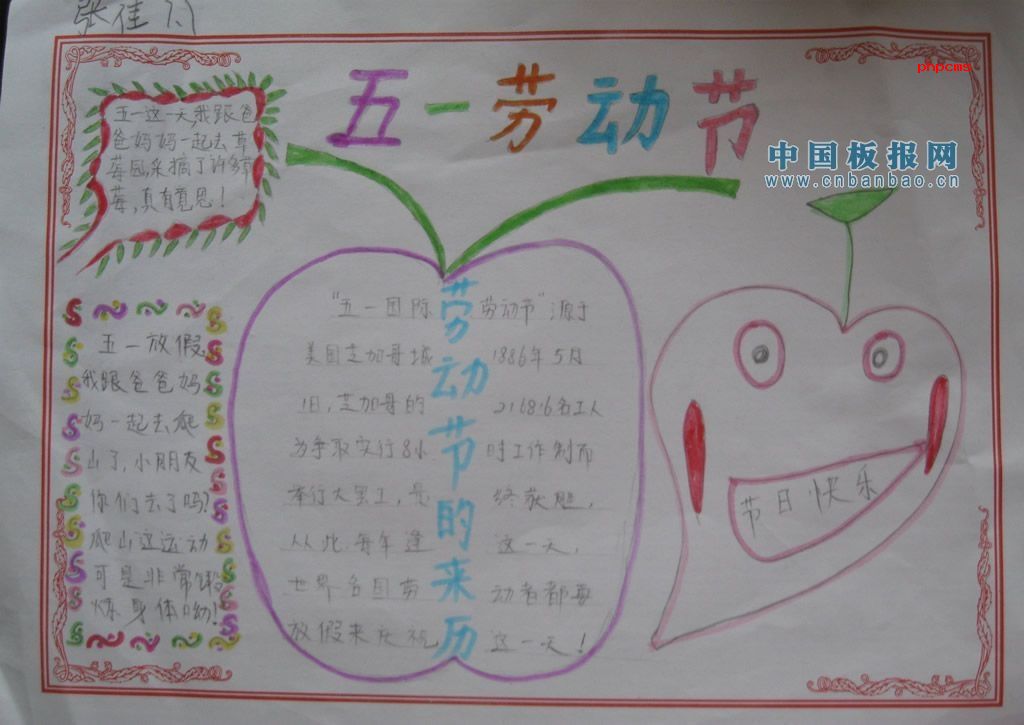 张佳
phpcms
五一劳动节
中国板报网
www.cnbanbao.cn
五一这一天,我跟爸
爸妈妈一起去草
莓园,采摘了许多草
莓,真有意思!
五一放假
我跟爸爸妈
妈一起去爬
山了,小朋友
你们去了吗?
爬山这运动
可是非常锻
炼身体呦!
劳动节的来历
"五一国际劳动节"源于
美国芝加哥城1886年5月
1日,芝加哥的21.68.6名工人
为争取实行8小时工作制而
举行大罢工,是终获胜,
从此每年逢这一天,
世界各国劳动者都要
放假来庆祝这一天!
节日快乐